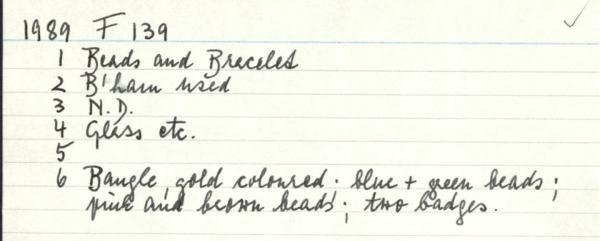 1989 F 139
1 Beads and Bracelet
2 B'ham used
3 N.D.
4 Glass etc.
5
6 Bangle, gold coloured. blue + green beads;
pink and brown beads; two badges.